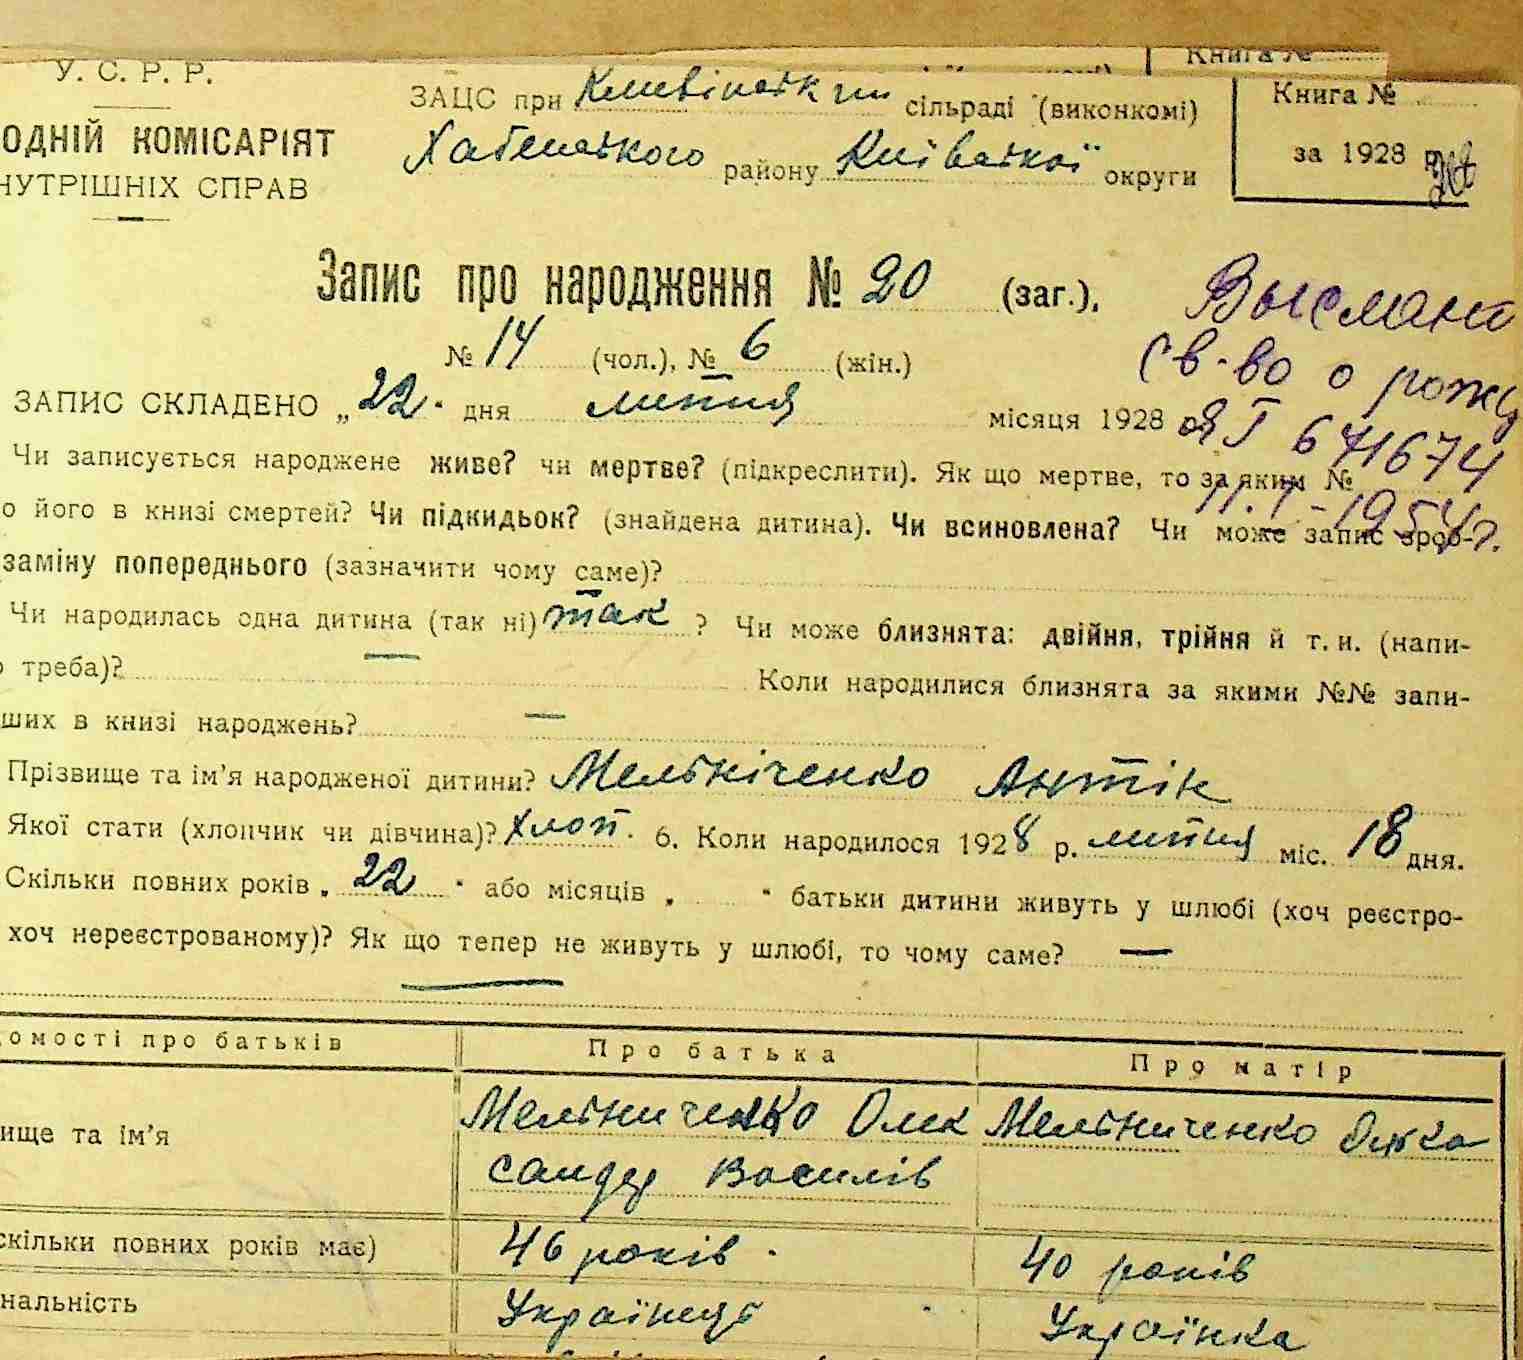 Книга №
У. С. Р. Р.
ОДНІЙ КОМІСАРІЯТ
НУТРІШНІХ СПРАВ
ЗАЦС при сільраді (виконкомі)
Хабенського району Київської округи
Книга №
за 1928 р.
Запис про народження № 20 (заг.).
№ 14 (чол.), № 6 (жін.)
Высмані
св-во о рожд
ЗАПИС СКЛАДЕНО „22" дня липня місяця 1928
ОЯ I 671674
Чи записується народжене живе? чи мертве? (підкреслити). Як що мертве, то за яким №
11.I-1954 г.
о його в книзі смертей? Чи підкидьок? (знайдена дитина). Чи всиновлена? Чи може запис зроб-
заміну попереднього (зазначити чому саме)?
Чи народилась одна дитина (так ні) так ? Чи може близнята: двійня, трійня й т. и. (напи-
о треба)? — Коли народилися близнята за якими №№ запи-
ших в книзі народжень? —
Прізвище та ім'я народженої дитини? Мельніченко Антін
Якої стати (хлопчик чи дівчина)? хлоп. 6. Коли народилося 1928 р. липня міс. 18 дня.
Скільки повних років „ 22 " або місяців „ " батьки дитини живуть у шлюбі (хоч реєстро-
хоч нереєстрованому)? Як що тепер не живуть у шлюбі, то чому саме? —
домості про батьків
Про батька
Про матір
ище та ім'я
Мельниченко Олек
сандр Василів
Мельниченко
скільки повних років має)
46 років.
40 років
нальність
Українць
Українка